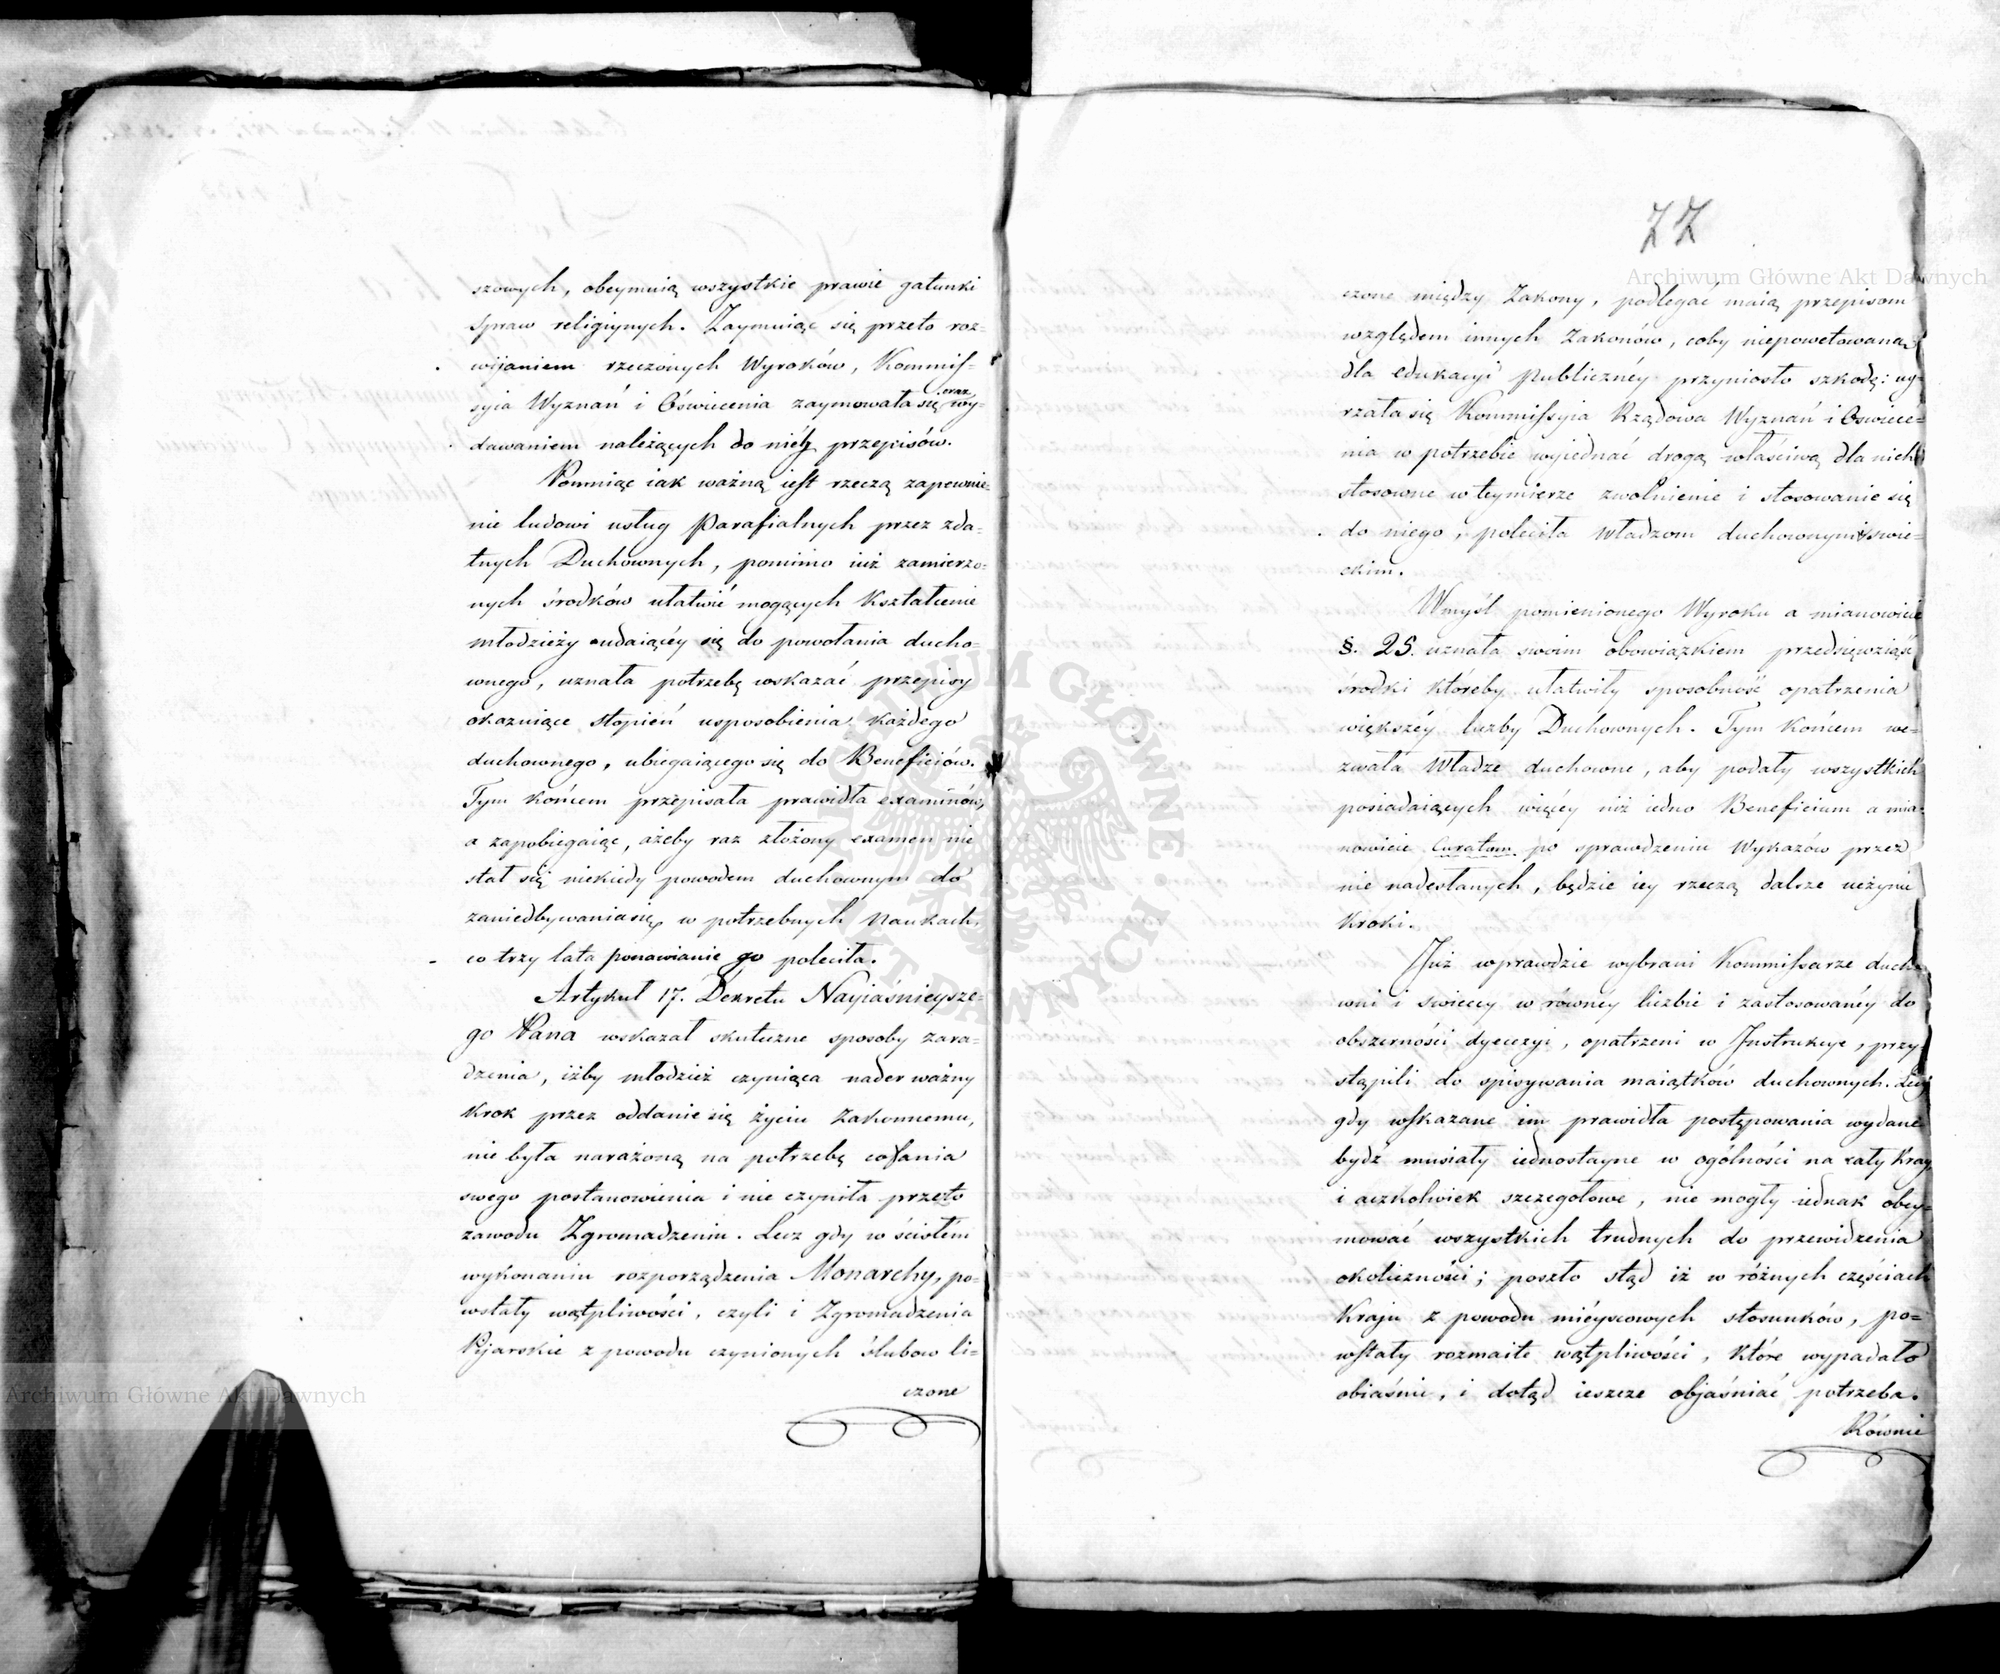 szowych, obeymuią wszystkie prawie gatunki
spraw religiynych. Zaymuiąc się przeto roz-
wijaniem rzeczonych Wyroków, Kommis-
syia Wyznań i Oświecenia zaymowała się oraz wy-
dawaniem należących do niéy przepisów.
Pomniąc iak ważną iest rzeczą zapewnie-
nie ludowi usług Parafialnych przez zda-
tnych Duchownych, pomimo iuż zamierzo-
nych środków ułatwić mogących Kształcenie
młodzieży udaiącéy się do powołania ducho-
wnego, uznała potrzebę wskazać przepisy
okazuiące stopień usposobienia każdego
duchownego, ubiegaiącego się do Beneficiów.
Tym końcem przepisała prawidła examinów,
a zapobiegaiąc, ażeby raz złożony examen nie
stał się niekiedy powodem duchownym do
zaniedbywania się w potrzebnych Naukach,
co trzy lata ponawianie go poleciła.
Artykuł 17. Dekretu Nayiaśnieysze-
go Pana wskazał skuteczne sposoby zara-
dzenia, iżby młodzież czyniąca nader ważny
Krok przez oddanie się życiu Zakonnemu,
nie była narażoną na potrzebę cofania
swego postanowienia i nie czyniła przeto
zawodu Zgromadzeniu. Lecz gdy w ścisłém
wykonaniu rozporządzenia Monarchy, po-
wstały wątpliwości, czyli i Zgromadzenia
Pijarskie z powodu czynionych ślubow li-
czone
77
Archiwum Główne Akt Dawnych
czone między Zakony, podlegać maią przepisom
względem innych Zakonów, coby niepowetowaną
dla edukacyi Publicznéy przyniosło szkodę: uy-
rzała się Kommissyia Rządowa Wyznań i Oswiece-
nia w potrzebie wyiednać drogą właściwą dla nich
stosowne w teymierze zwolnienie i stosowanie się
do niego, poleciła Władzom duchownym i swie-
ckim.
W myśl pomienionego Wyroku a mianowicie
§. 25. uznała swoim obowiązkiem przedsięwziąść
środki któreby ułatwiły sposobność opatrzenia
większéy liczby Duchownych. Tym Końcem we-
zwała Władze duchowne, aby podały wszystkich
posiadaiących więcéy niż iedno Beneficium a mia-
nowicie Curatum. po sprawdzeniu Wykazów przez
nie nadesłanych, będzie iey rzeczą dalsze uczynić
Kroki.
Już wprawdzie wybrani Kommissarze ducho-
wni i swieccy w równéy liczbie i zastosowanéy do
obszerności dyecezyi, opatrzeni w Instrukcye, przy-
stąpili do spisywania maiątków duchownych. Lecz
gdy wskazane im prawidła postępowania wydane
bydź musiały iednostayne w ogólności na cały Kray
i aczkolwiek szczegołowe, nie mogły iednak obey-
mować wszystkich trudnych do przewidzenia
okoliczności; poszło stąd iż w różnych częściach
Kraju z powodu miéyscowych stosunków, po-
wstały rozmaite wątpliwości, które wypadało
obiaśnić, i dotąd ieszcze objaśniać potrzeba.
Równie
Archiwum Główne Akt Dawnych
ARCHIWUM GŁÓWNE AKT DAWNYCH